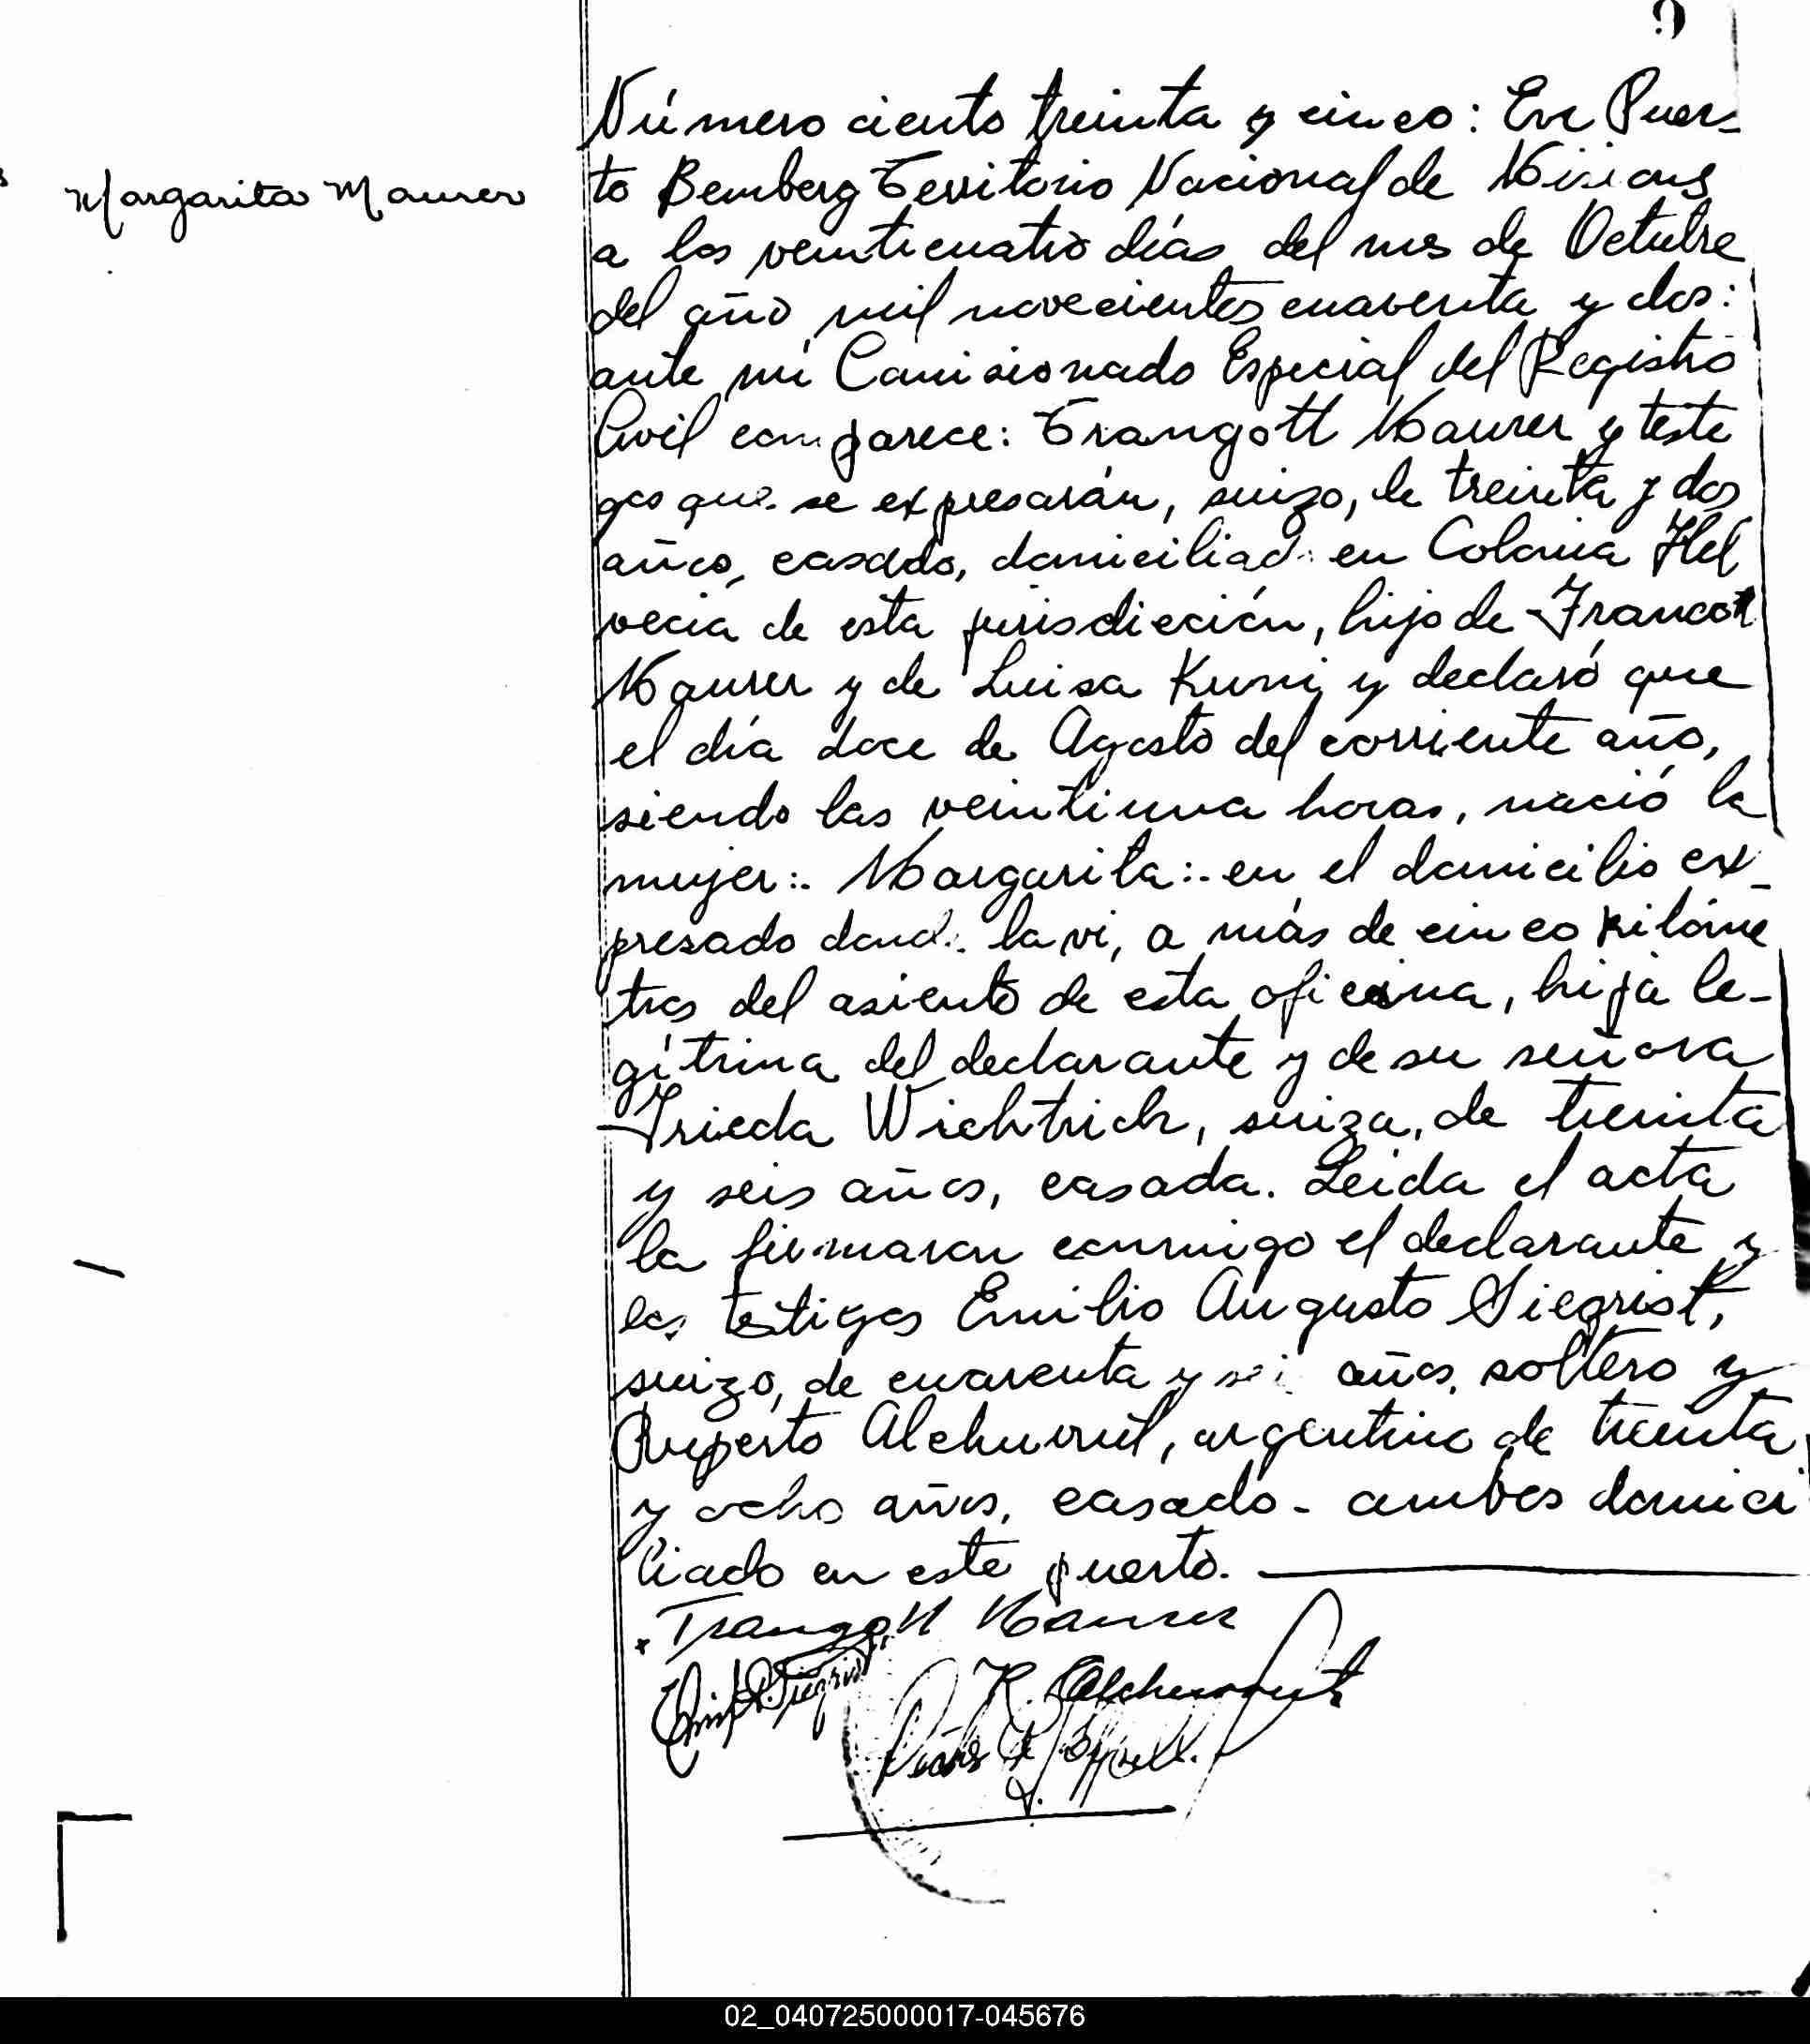 Margarita Maurer
Número ciento treinta y cinco: En Puer-
to Bemberg Territorio Nacional de Misiones
a los veinticuatro días del mes de Octubre
del año mil novecientos cuarenta y dos:
ante mí Comisionado Especial del Registro
Civil comparece: Traugott Maurer y testi
gos que se expresarán, suizo, de treinta y dos
años, casado, domiciliado en Colonia Hel
vecia de esta jurisdicción, hijo de
Maurer y de Luisa Kuni y declaró que
el día doce de Agosto del corriente año,
siendo las veintiuna horas, nació la
mujer:. Margarita:. en el domicilio ex_
presado donde la vi, a más de cinco kilóme
tros del asiento de esta oficina, hija le-
gítima del declarante y de su señora
Frieda Wichtrich, suiza, de treinta
y seis años, casada. Leida el acta
la firmaron conmigo el declarante y
los testigos Emilio Augusto Siegrist,
suizo, de cuarenta y seis años, soltero y
Ruperto Alchurrut, argentino de treinta
y ocho años, casado - ambos domici
liado en este puerto.
Traugott Maurer
R. Alchurrut
02_040725000017-045676